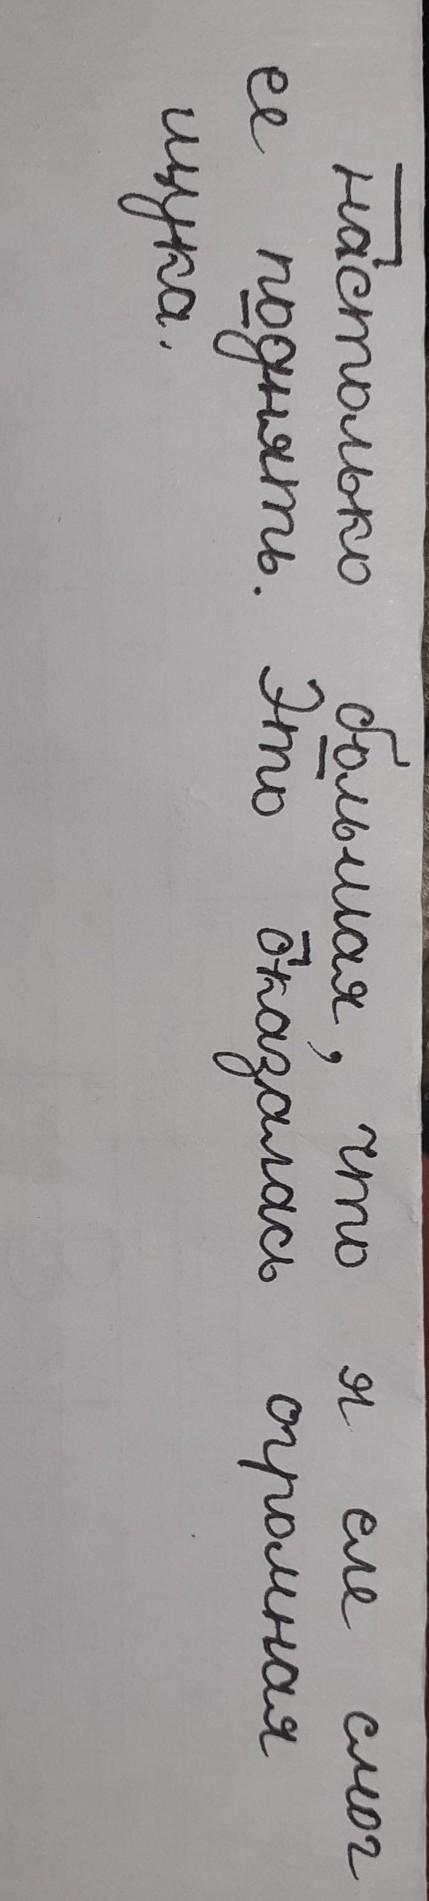 настолько большая, что я еле смог
ее поднять. Это оказалась огромная
щука.